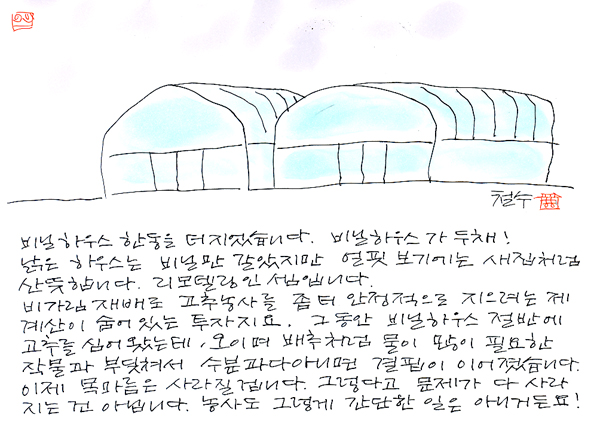 철수
비닐하우스 한동을 더 지었습니다. 비닐하우스가 두채!
낡은 하우스는 비닐만 갈았지만 얼핏 보기에는 새집처럼
산뜻합니다. 리모델링인 셈입니다.
비가림 재배로 고추농사를 좀 더 안정적으로 지으려는 제
계산이 숨어 있는 투자지요. 그동안 비닐하우스 절반에
고추를 심어 왔는데, 오이며 배추처럼 물이 많이 필요한
작물과 부딪쳐서 수분과다아니면 결핍이 이어졌습니다.
이제 목마름은 사라질겁니다. 그렇다고 문제가 다 사라
지는 건 아닙니다. 농사도 그렇게 간단한 일은 아니거든요!